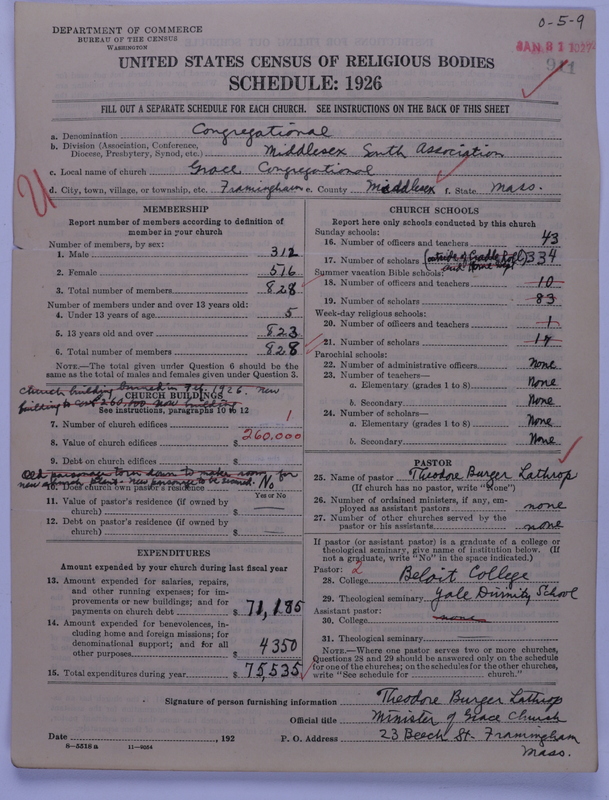 0-5-9
DEPARTMENT OF COMMERCE
BUREAU OF THE CENSUS
WASHINGTON
JAN 31 1927
911
UNITED STATES CENSUS OF RELIGIOUS BODIES
SCHEDULE: 1926
FILL OUT A SEPARATE SCHEDULE FOR EACH CHURCH. SEE INSTRUCTIONS ON THE BACK OF THIS SHEET
a. Denomination Congregational
b. Division (Association, Conference, Diocese, Presbytery, Synod, etc.) Middlesex South Association
c. Local name of church Grace Congregational
d. City, town, village, or township, etc. Framingham e. County Middlesex f. State Mass.
MEMBERSHIP
Report number of members according to definition of
member in your church
Number of members, by sex:
1. Male 312
2. Female 516
3. Total number of members 828
Number of members under and over 13 years old:
4. Under 13 years of age 5
5. 13 years old and over 823
6. Total number of members 828
NOTE.—The total given under Question 6 should be the
same as the total of males and females given under Question 3.
church building burned in Feb. 1926. New
building to cost 260,000 now building
CHURCH BUILDINGS
See instructions, paragraphs 10 to 12
7. Number of church edifices 1
8. Value of church edifices $ 260.000
9. Debt on church edifices $
Old parsonage torn down to make room for
new church plant. New parsonage to be
10. Does church own pastor's residence? No
Yes or No
11. Value of pastor's residence (if owned by
church) $
12. Debt on pastor's residence (if owned by
church) $
EXPENDITURES
Amount expended by your church during last fiscal year
13. Amount expended for salaries, repairs,
and other running expenses; for im-
provements or new buildings; and for
payments on church debt $ 71,185
14. Amount expended for benevolences,
including home and foreign missions; for
denominational support; and for all
other purposes $ 4350
15. Total expenditures during year $ 75,535
CHURCH SCHOOLS
Report here only schools conducted by this church
Sunday schools:
16. Number of officers and teachers 43
17. Number of scholars (outside of Cradle Roll and Home Dept) 334
Summer vacation Bible schools:
18. Number of officers and teachers 10
19. Number of scholars 83
Week-day religious schools:
20. Number of officers and teachers 1
21. Number of scholars 14
Parochial schools:
22. Number of administrative officers None
23. Number of teachers—
a. Elementary (grades 1 to 8) None
b. Secondary None
24. Number of scholars—
a. Elementary (grades 1 to 8) None
b. Secondary None
PASTOR
25. Name of pastor Theodore Burger Lathrop
(If church has no pastor, write "None")
26. Number of ordained ministers, if any, em-
ployed as assistant pastors none
27. Number of other churches served by the
pastor or his assistants none
If pastor (or assistant pastor) is a graduate of a college or
theological seminary, give name of institution below. (If
not a graduate, write "No" in the space indicated.)
Pastor: 2
28. College Beloit College
29. Theological seminary Yale Divinity School
Assistant pastor:
30. College none
31. Theological seminary
NOTE.—Where one pastor serves two or more churches,
Questions 28 and 29 should be answered only on the schedule
for one of the churches; on the schedules for the other churches,
write "See schedule for church."
Signature of person furnishing information Theodore Burger Lathrop
Official title Minister of Grace Church
Date , 192 P. O. Address 23 Beech St. Framingham
Mass.
8—5318 a 11—9054